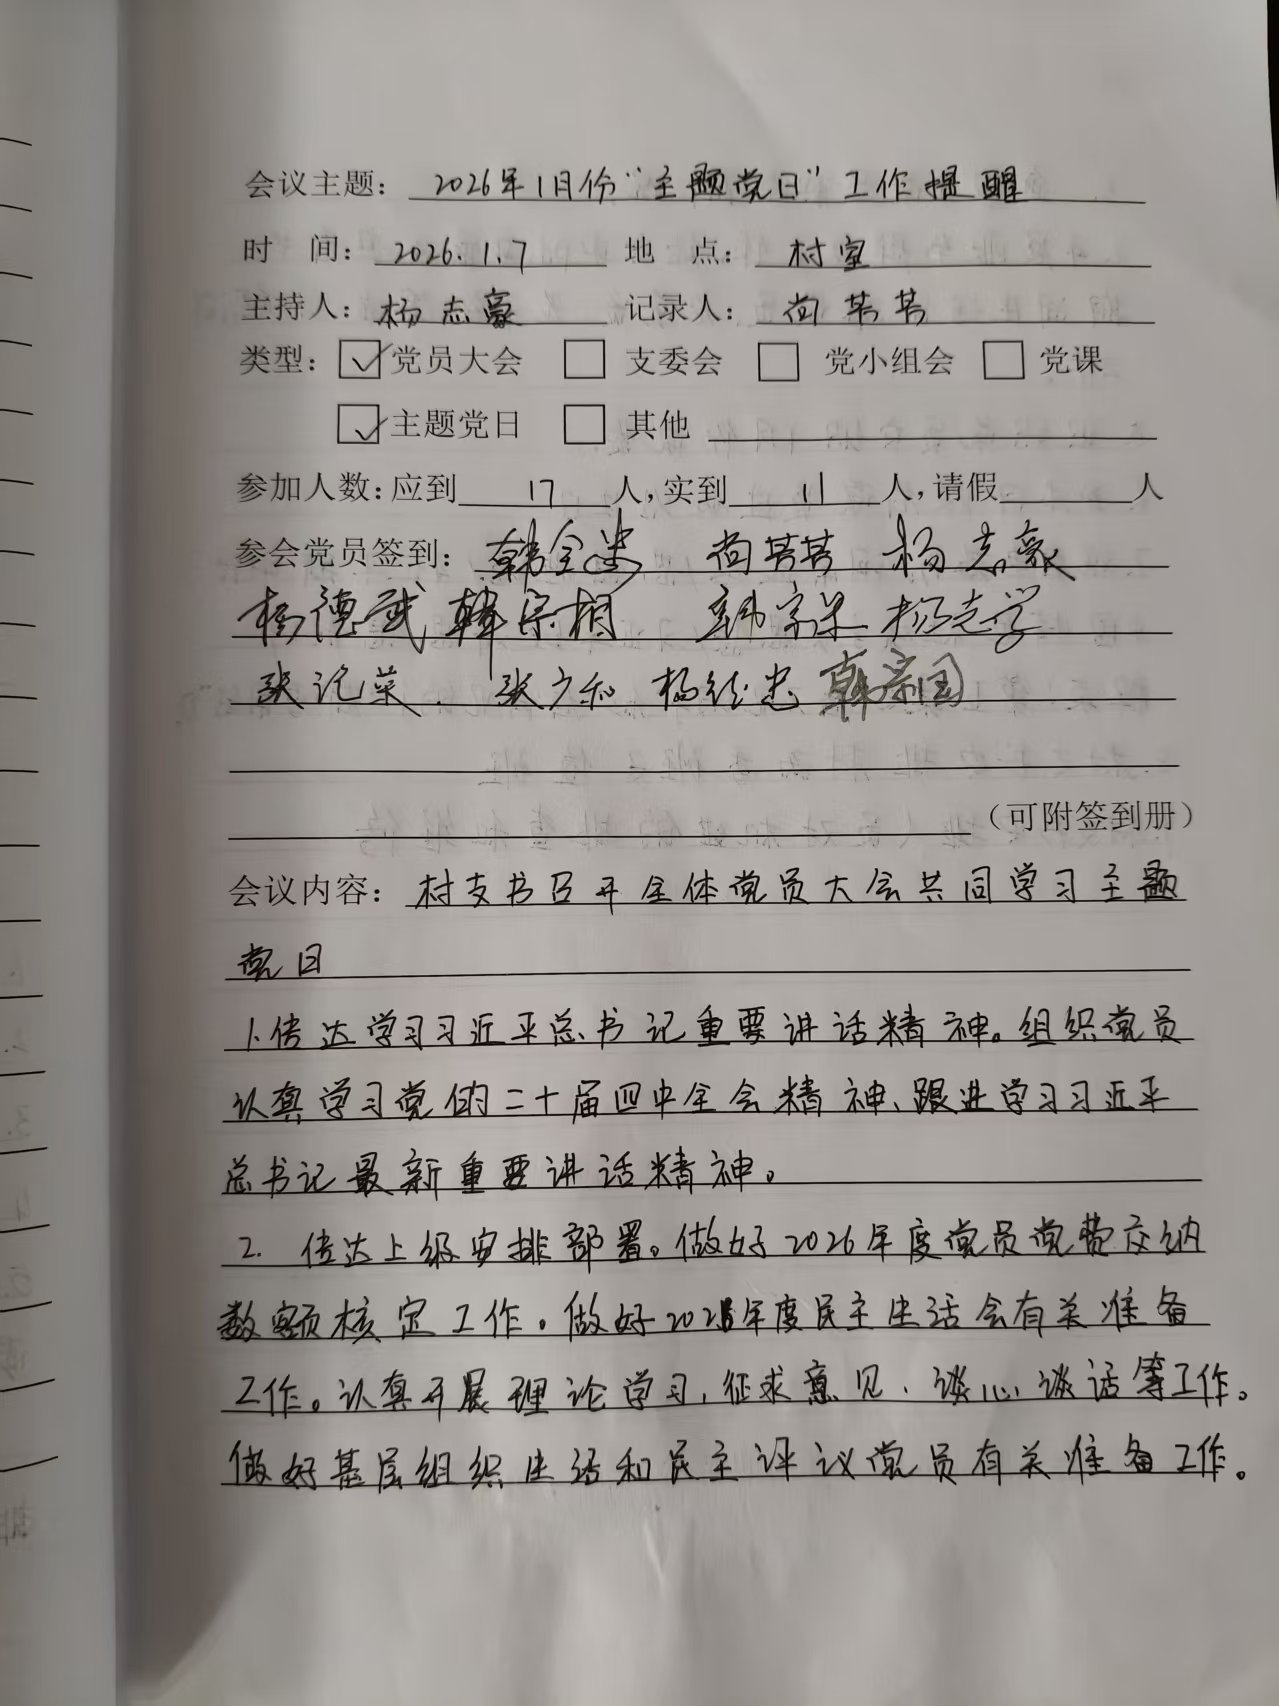 会议主题：2026年1月份“主题党日”工作提醒
时 间：2026.1.7 地 点：村室
主持人：杨志豪 记录人：尚芳芳
类型：☑党员大会 □ 支委会 □ 党小组会 □ 党课
☑主题党日 □ 其他
参加人数：应到 17 人，实到 11 人，请假 人
参会党员签到：韩全忠 尚芳芳 杨志豪
杨德武 韩宗相 韩宗果 杨志学
张记菜 张广和 杨德忠 韩宗国
（可附签到册）
会议内容：村支书召开全体党员大会共同学习主题
党日
1.传达学习习近平总书记重要讲话精神。组织党员
认真学习党的二十届四中全会精神、跟进学习习近平
总书记最新重要讲话精神。
2. 传达上级安排部署。做好2026年度党员党费交纳
数额核定工作。做好2025年度民主生活会有关准备
工作。认真开展理论学习，征求意见、谈心谈话等工作。
做好基层组织生活和民主评议党员有关准备工作。